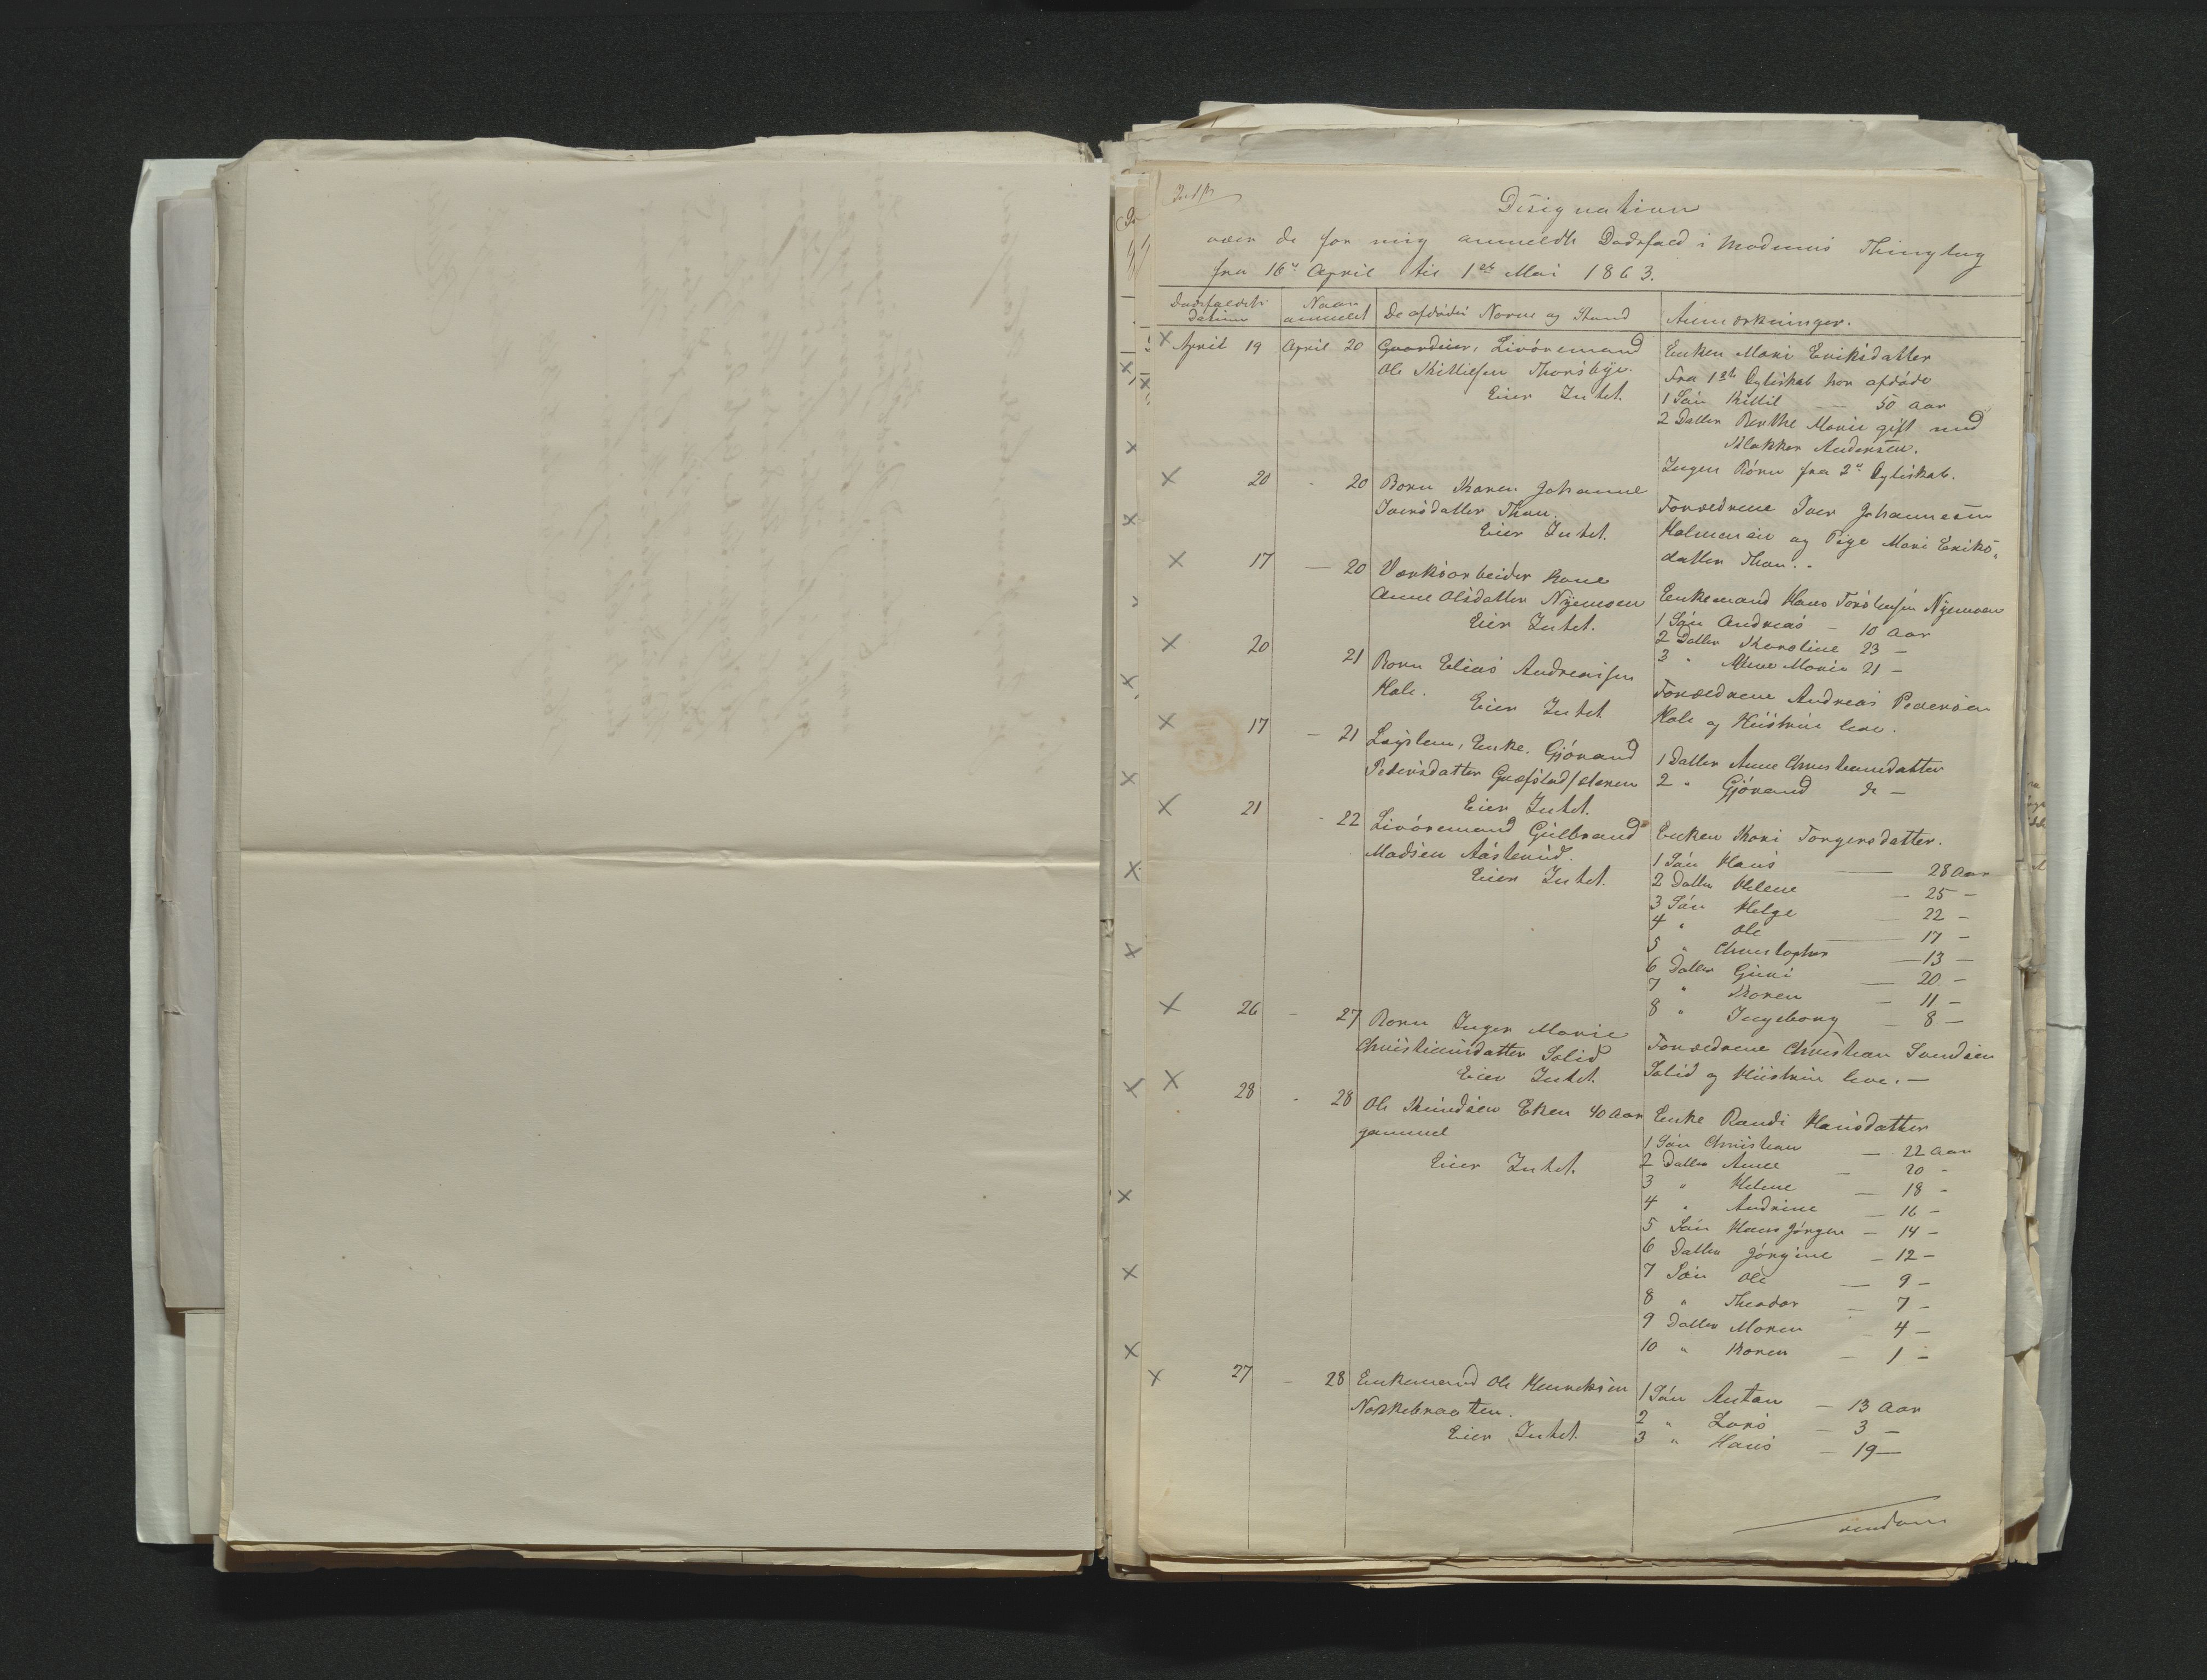 Designation
over de for mig anmeldte Dødsfald i Modums Thinglag
fra 16de April til 1ste Mai 1863.
Dødsfaldets Datum
Naar anmeldt
De afdødes Navne og Stand
Anmærkninger.
April 19 April 20 Gaardeier, Livøremand
Ole Kittilsen Thorsbÿe.
Eier Intet.
Enken Mari Eriksdatter
Fra 1ste Egteskab har afdøde
1 Søn Kittil — 50 Aar
2 Datter Berthe Marie gift med
Blakker Andersen.
Ingen Børn fra 2det Egteskab.
20 - 20 Barn Karen Johanne
Iversdatter Thon.
Eier Intet.
Forældrene Iver Johannesen
Holmen eie og Pige Mari Eriks-
datter Thon. -
17 — 20 Værksarbeider Kone
Anne Olsdatter Nÿemoen
Eier Intet.
Enkemand Hans Torstensen Nÿemoen
1 Søn Andreas — 10 Aar
2 Datter Karoline 23 —
3 " Anne Marie 21 —
20 21 Barn Elias Andreasen
Hole.
Eier Intet
Forældrene Andreas Pedersen
Hole og Hustrue leve.
17 — 21 Lægslem, Enke. Gjørand
Pedersdatter Græfstad/eieren
Eier Intet.
1 Datter Anne Christiansdatter
2 " Gjørand do —
21 - 22 Livøremand Gulbrand
Madsen Aasterud.
Eier Intet.
Enken Kari Torgersdatter.
1 Søn Hans — 28 Aar
2 Datter Helene — 25 —
3 Søn Helge — 22 —
4 " Ole — 17 —
5 " Christopher — 13 —
6 Datter Guri — 20 —
7 " Karen — 11 —
8 " Ingeborg — 8 —
26 - 27 Barn Inger Marie
Christiansdatter Solid
Eier Intet.
Forældrene Christian Svendsen
Solid og Hustrue leve. —
28 - 28 Ole Knudsen Eken 40 Aar
gammel
Eier Intet.
Enke Randi Hansdatter
1 Søn Christian — 22 Aar
2 Datter Anne — 20 -
3 " Helene — 18 -
4 " Andrine — 16 —
5 Søn Hans Jørgen — 14 —
6 Datter Jørgine — 12 —
7 Søn Ole — 9 —
8 " Theodor — 7 —
9 Datter Maren — 4 —
10 " Karen — 1 —
27 — 28 Enkemand Ole Henriksen
Nakkebraatten.
Eier Intet.
1 Søn Anton — 13 Aar
2 " Lars — 3 —
3 " Hans — 19 —